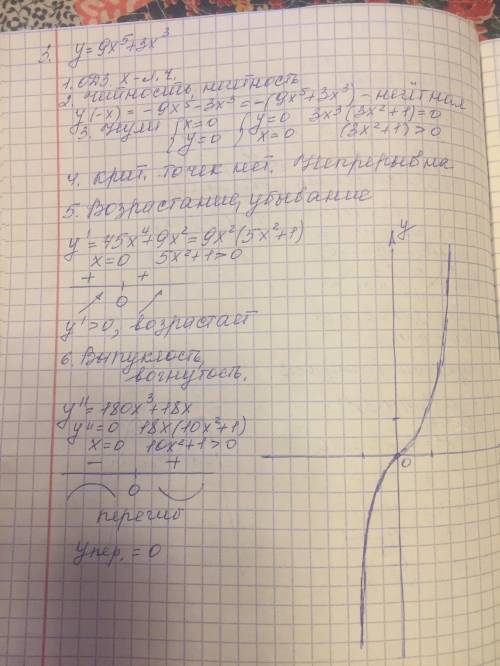 3. y=9x⁵+3x³
1. ОДЗ x-л.ч.
2. Четность, нечётность
y(-x) = -9x⁵-3x³ = -(9x⁵+3x³) - нечётная
3. Нули { x=0 { y=0 3x³(3x²+1)=0
y=0 x=0 (3x²+1)>0
4. крит. точек нет. Непрерывна
5. Возрастание, убывание
y' = 45x⁴+9x² = 9x²(5x²+1)
x=0 5x²+1>0
+ +
0
y'>0, возрастает
6. Выпуклость,
вогнутость.
y''=180x³+18x
y''=0 18x(10x²+1)
x=0 10x²+1>0
- +
0
перегиб
yпер.=0
y
0